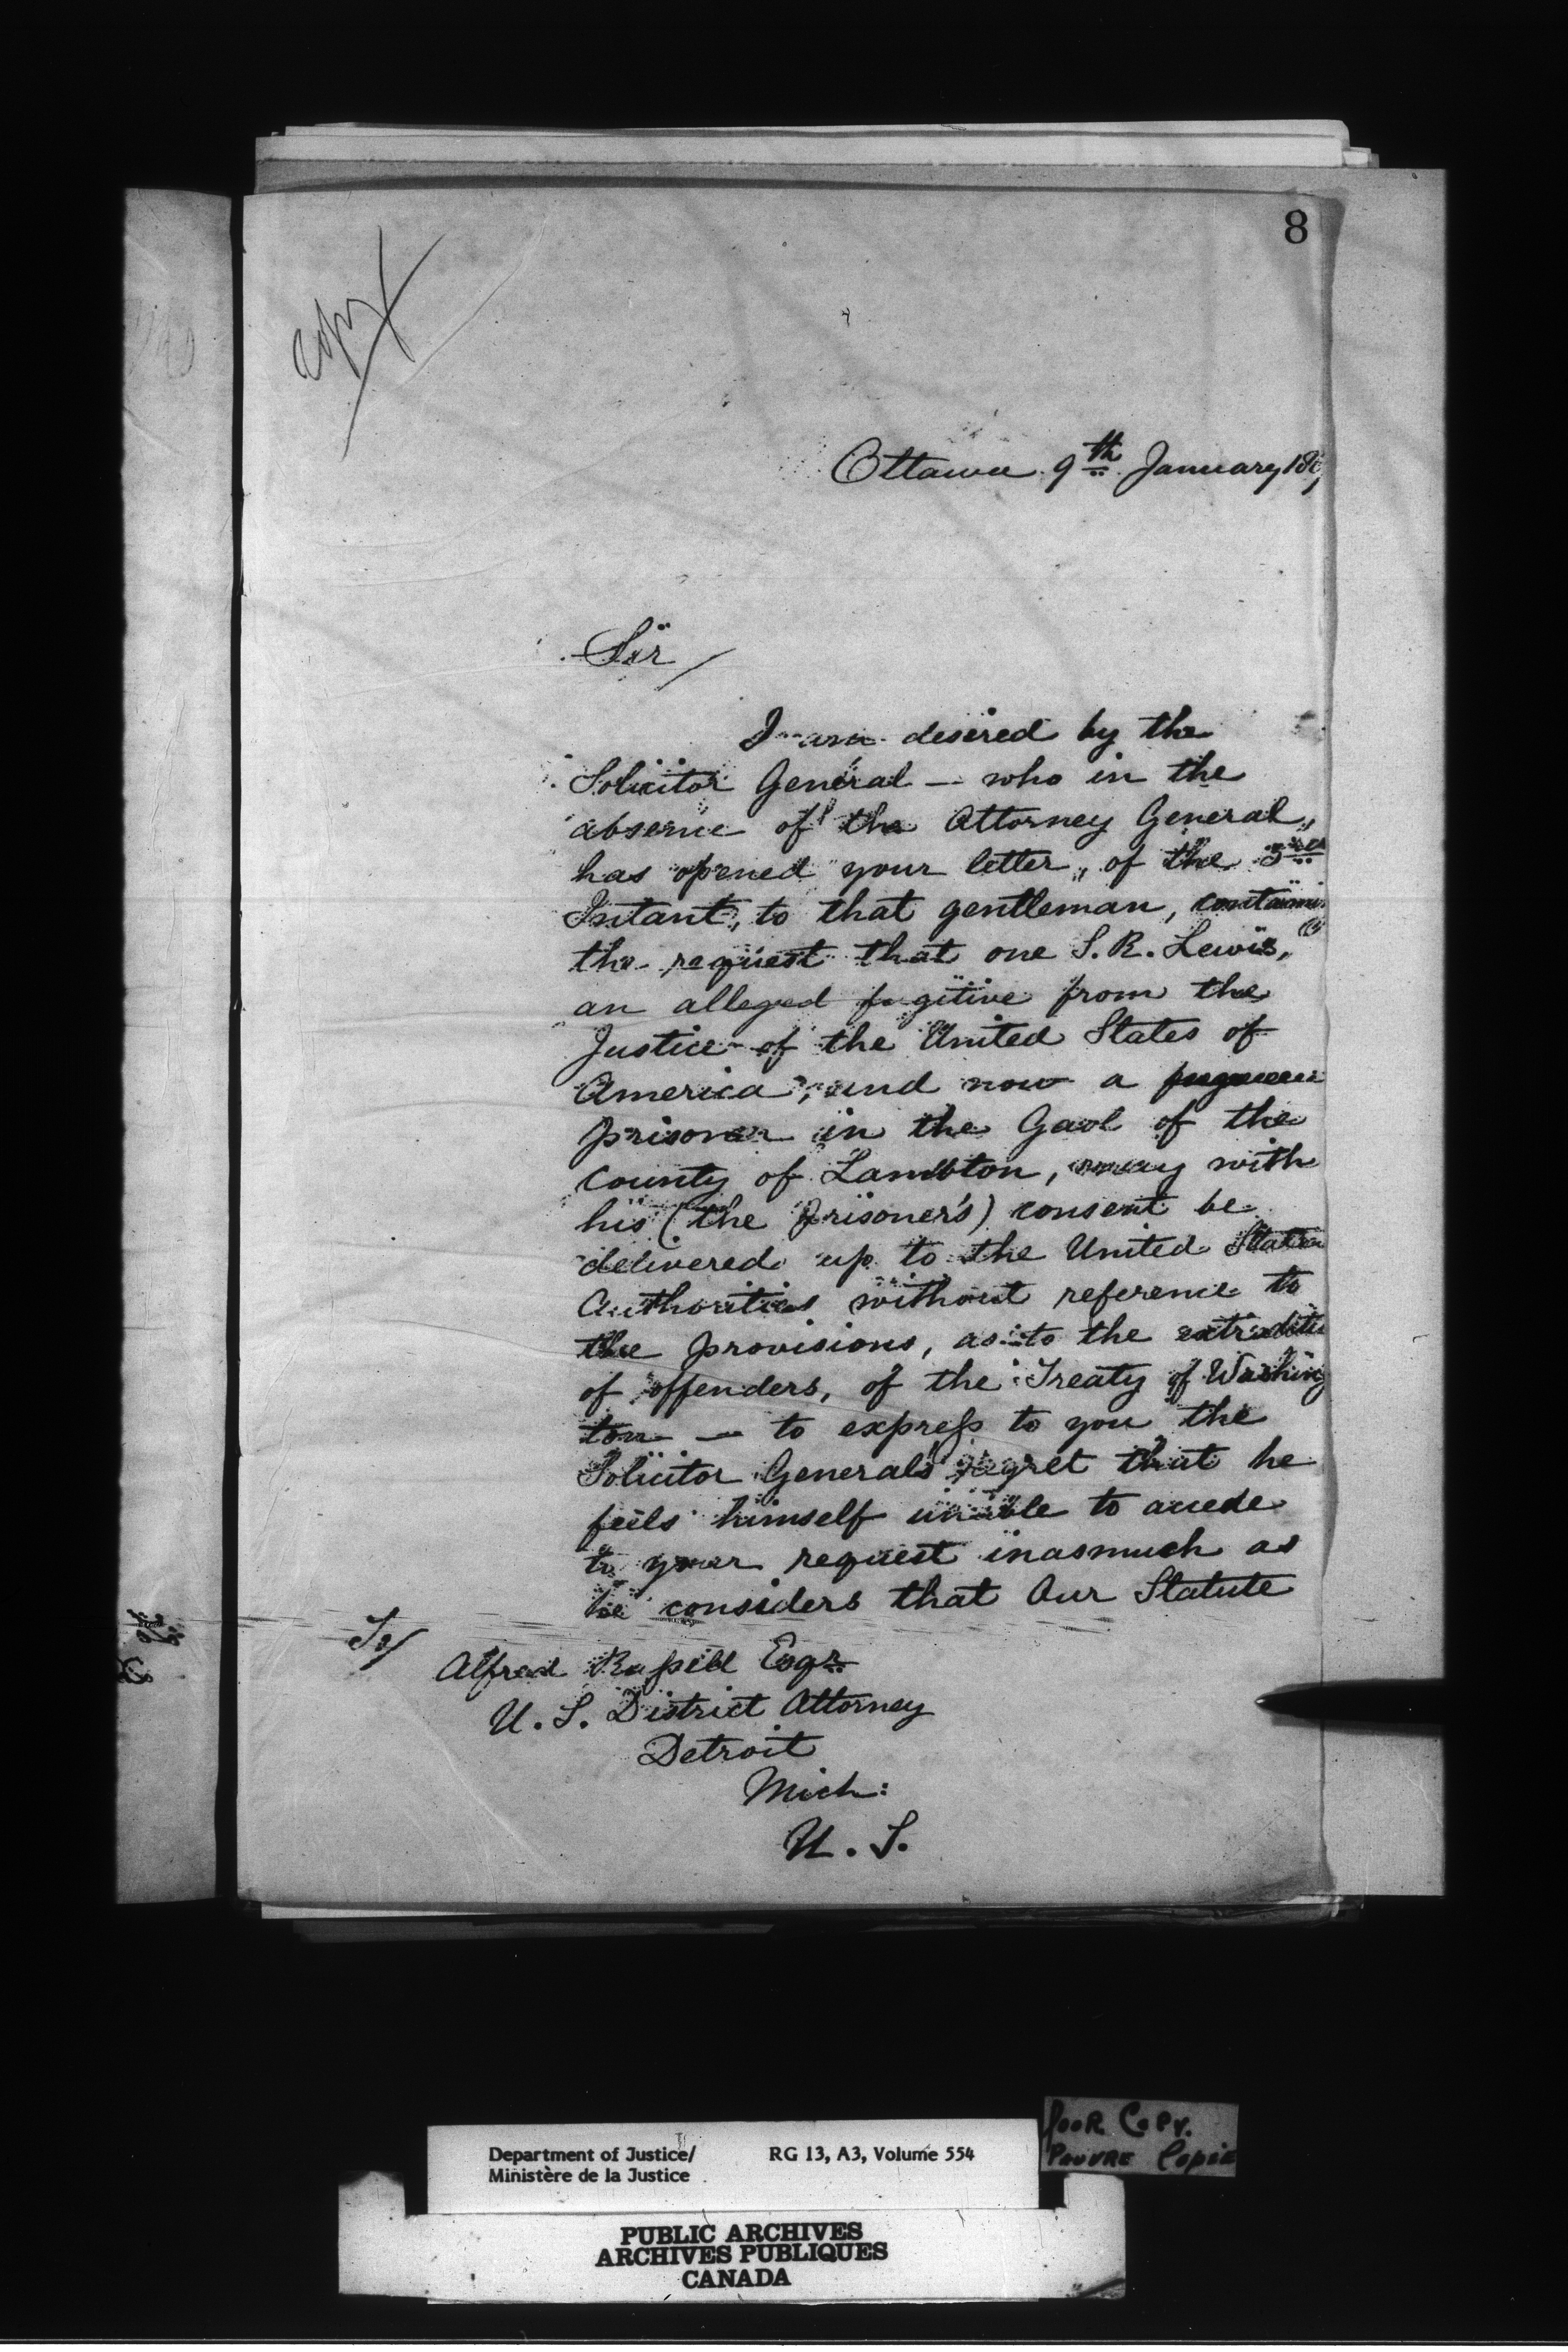 8
Copy
Ottawa 9th January 18
Sir/
I am desired by the
Solicitor General — who in the
absence of the Attorney General,
has opened your letter, of the 3rd
Instant, to that gentleman, containi
the request that one S. R. Lewis,
an alleged fugitive from the
Justice of the United States of
America, and now a
prisoner in the Gaol of the
County of Lambton, may with
his (the prisoner's) consent be
delivered up to the United States
Authorities without reference to
the provisions, as to the extraditi
of offenders, of the Treaty of Washing
ton — to express to you the
Solicitor General's regret that he
feels himself unable to accede
to your request inasmuch as
he considers that Our Statute
To/
Alfred Russell Esqr.
U. S. District Attorney
Detroit
Mich:
U. S.
Department of Justice/ RG 13, A3, Volume 554
Ministère de la Justice
POOR COPY.
PAUVRE COPIE
PUBLIC ARCHIVES
ARCHIVES PUBLIQUES
CANADA